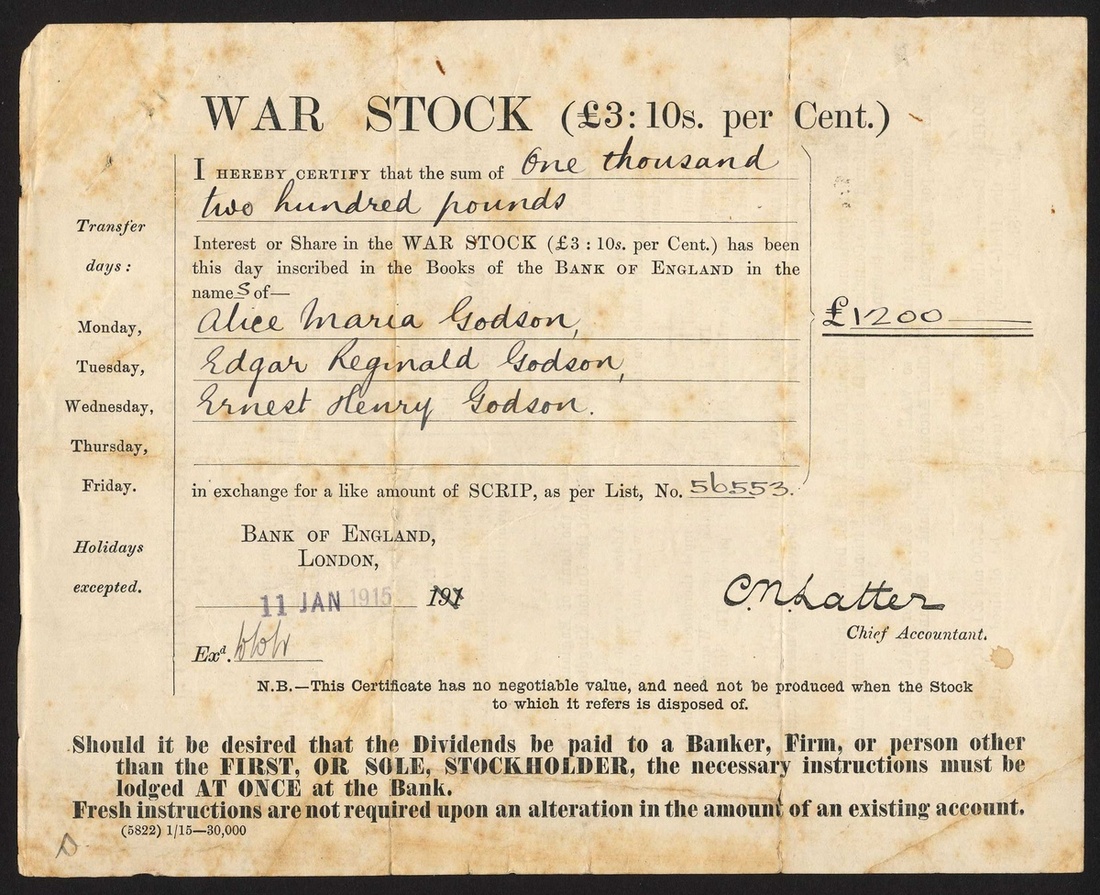 WAR STOCK (£3: 10s. per Cent.)
I HEREBY CERTIFY that the sum of One thousand
two hundred pounds
Interest or Share in the WAR STOCK (£3 : 10s. per Cent.) has been
this day inscribed in the Books of the BANK OF ENGLAND in the
names of—
Alice Maria Godson,
Edgar Reginald Godson,
Ernest Henry Godson.
£1200
in exchange for a like amount of SCRIP, as per List, No. 56553.
Transfer
days:
Monday,
Tuesday,
Wednesday,
Thursday,
Friday.
Holidays
excepted.
BANK OF ENGLAND,
LONDON,
11 JAN 1915 191
Exd.
C.N.Latter
Chief Accountant.
N.B.—This Certificate has no negotiable value, and need not be produced when the Stock
to which it refers is disposed of.
Should it be desired that the Dividends be paid to a Banker, Firm, or person other
than the FIRST, OR SOLE, STOCKHOLDER, the necessary instructions must be
lodged AT ONCE at the Bank.
Fresh instructions are not required upon an alteration in the amount of an existing account.
(5822) 1/15—30,000